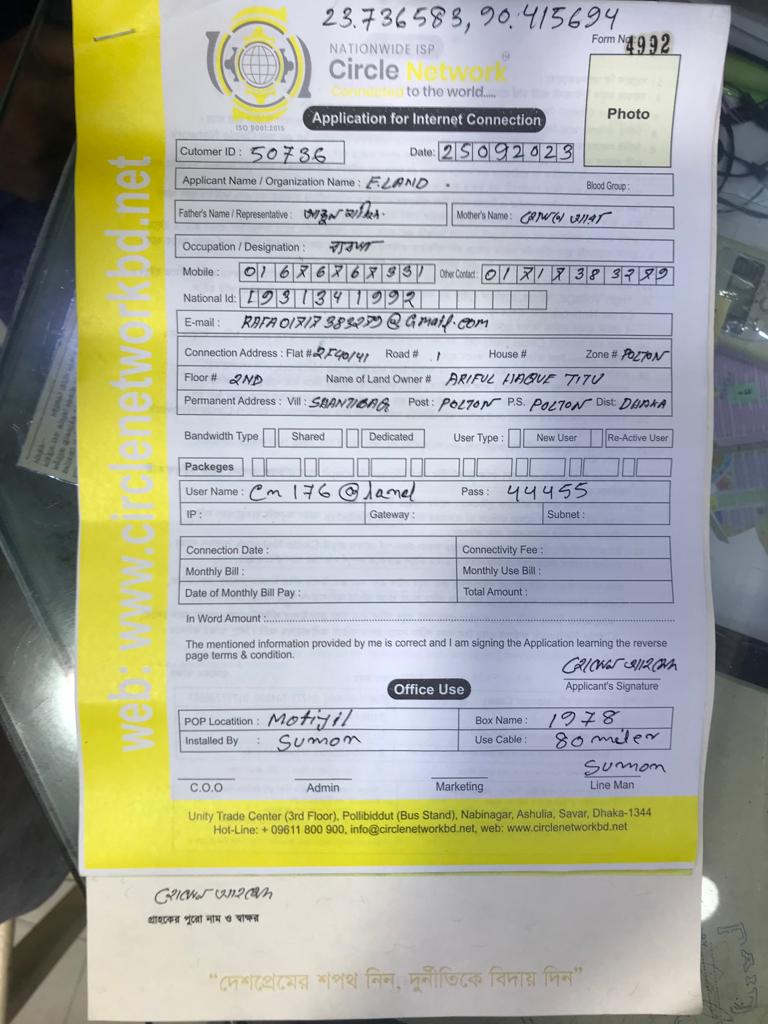 23.736583, 90.415694
Form No 4992
NATIONWIDE ISP
Circle Network
Connected to the world.....
ISO 9001:2015
Application for Internet Connection
Photo
Cutomer ID : 50736 Date: 25092023
Applicant Name / Organization Name : E.LAND . Blood Group :
Father's Name / Representative : Mother's Name :
Occupation / Designation : ব্যবসা
Mobile : 01676767331 Other Contact : 01717383279
National Id: 1931341992
E-mail : RAFA01717383279@Gmail.com
Connection Address : Flat # 2F40/41 Road # 1 House # Zone # POLTON
Floor # 2ND Name of Land Owner # ARIFUL HAQUE TITU
Permanent Address : Vill : SHANTIBAG Post : POLTON P.S. POLTON Dist: DHAKA
Bandwidth Type Shared Dedicated User Type : New User Re-Active User
Packeges
User Name : Cm176@lamel Pass : 44455
IP : Gateway : Subnet :
Connection Date : Connectivity Fee :
Monthly Bill : Monthly Use Bill :
Date of Monthly Bill Pay : Total Amount :
In Word Amount :
The mentioned information provided by me is correct and I am signing the Application learning the reverse
page terms & condition.
Applicant's Signature
Office Use
POP Locatition : Motijil Box Name : 1978
Installed By : Sumon Use Cable : 80 miter
Sumon
C.O.O Admin Marketing Line Man
Unity Trade Center (3rd Floor), Pollibiddut (Bus Stand), Nabinagar, Ashulia, Savar, Dhaka-1344
Hot-Line: + 09611 800 900, info@circlenetworkbd.net, web: www.circlenetworkbd.net
web: www.circlenetworkbd.net
গ্রাহকের পুরো নাম ও স্বাক্ষর
“দেশপ্রেমের শপথ নিন, দুর্নীতিকে বিদায় দিন”